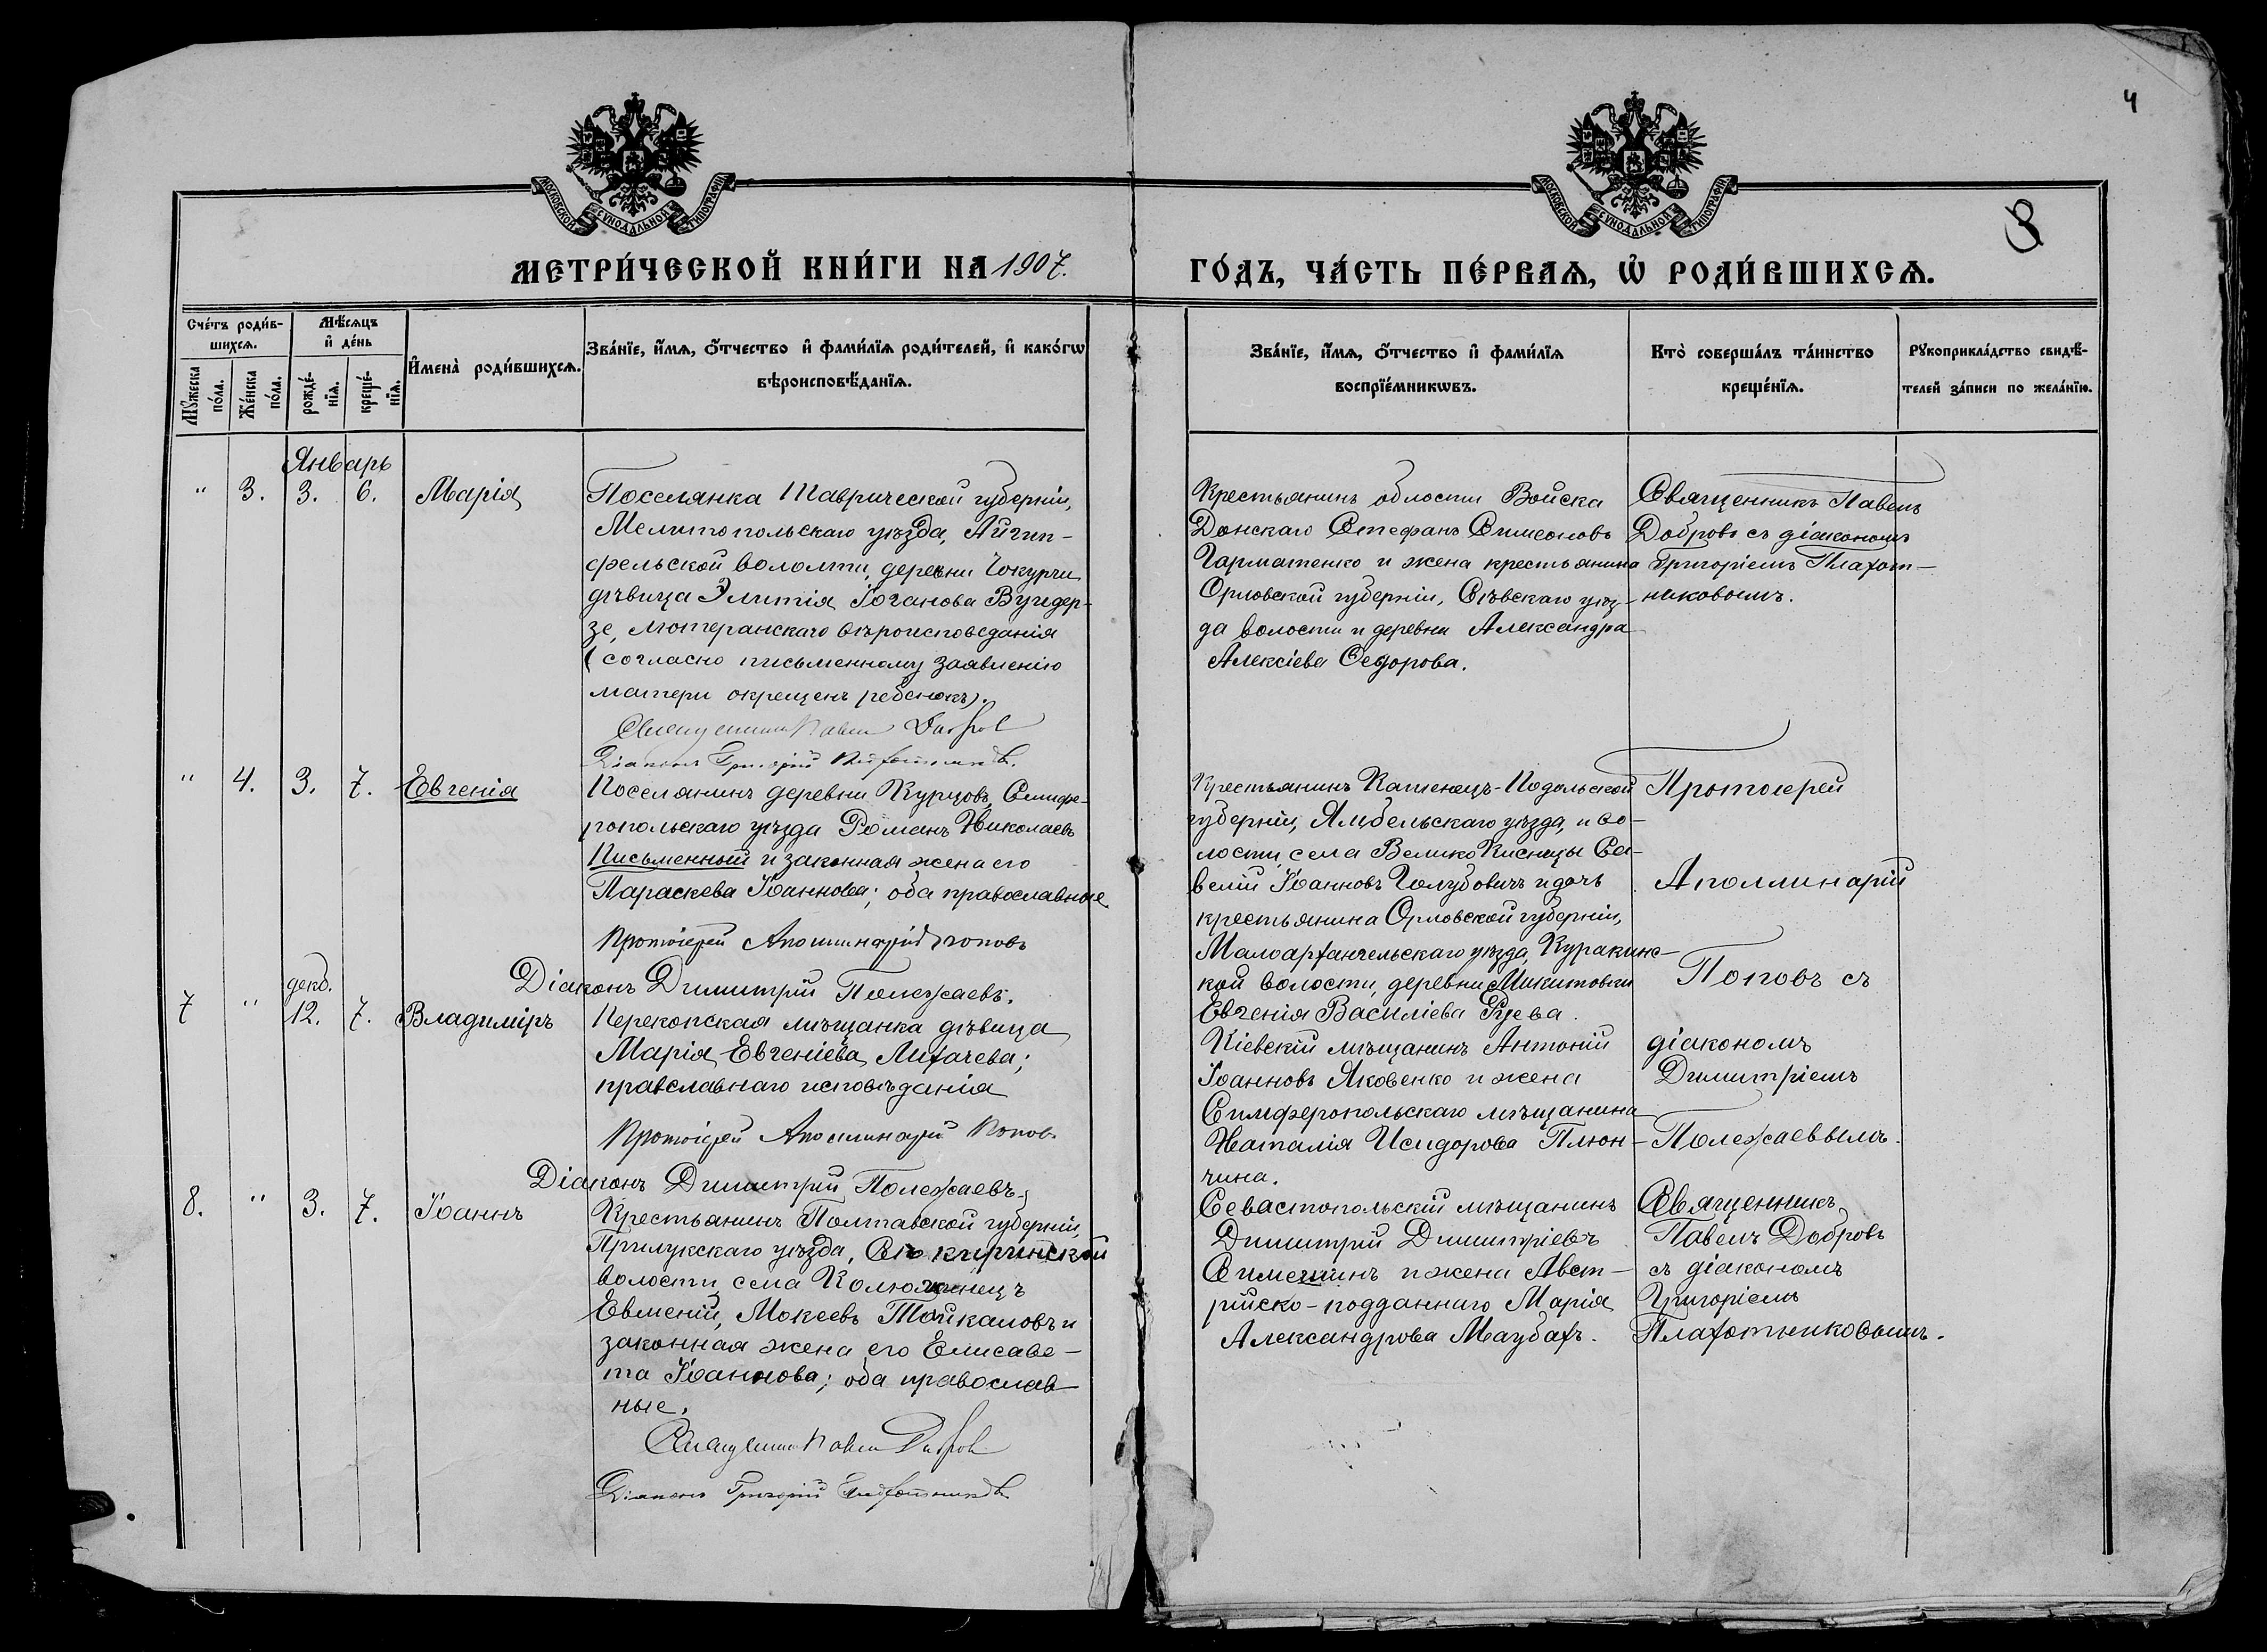 4
МОСКОВСКОЙ СѴНОДАЛЬНОЙ ТИПОГРАФІИ
МОСКОВСКОЙ СѴНОДАЛЬНОЙ ТИПОГРАФІИ
3
МЕТРИ́ЧЕСКОЙ КНИ́ГИ НА 1907.
ГО́ДЪ, ЧА́СТЬ ПЕ́РВАѦ, Ѡ҆ РОДИ́ВШИХСѦ.
Сче́тъ роди́в-
шихсѧ.
Мѣ́сѧцъ
и҆ де́нь
Мꙋ́жеска
по́ла.
Же́нска
по́ла.
рожде́-
нїѧ.
креще́-
нїѧ.
И҆мена̀ роди́вшихсѧ.
Зва́нїе, и҆́мѧ, ѻ҆́тчество и҆ фами́лїѧ роди́телей, и҆ како́гѡ
вѣроисповѣ́данїѧ.
Зва́нїе, и҆́мѧ, ѻ҆́тчество и҆ фами́лїѧ
воспрїе́мникѡвъ.
Кто̀ соверша́лъ та́инство
креще́нїѧ.
Рꙋкоприкла́дство свидѣ́-
телей за́писи по жела́нїю.
Январь
" 3. 3. 6. Марія
Поселянка Таврической губерніи,
Мелитопольскаго уѣзда, Айгин-
фельской вололти, деревни Чокурчи
дѣвица Элитія Іоганова Вундер-
зе, лютеранскаго вѣроисповеданія
(согласно письменному заявленію
матери окрещенъ ребенокъ).
Священникъ Павелъ Добров
Діаконъ Григорій Плахотниковъ.
Крестьянинъ области Войска
Донскаго Стефанъ Симеоновъ
Гарматенко и жена крестьянина
Орловской губерніи, Сѣвскаго уѣз-
да волости и деревни Александра
Алексіева Ѳедорова.
Священникъ Павелъ
Добровъ съ діакономъ
Григоріемъ Плахот-
никовымъ.
" 4. 3. 7. Евгенія
Поселянинъ деревни Курцовъ, Симфе-
ропольскаго уѣзда Романъ Николаевъ
Письменный и законная жена его
Параскева Іоаннова; оба православные
Протоіерей Аполлинарій Поповъ
Діаконъ Димитрій Полежаевъ.
Крестьянинъ Каменецъ-Подольской
губерніи, Ямбельскаго уѣзда, и во-
лости, села Велико Кисницы Са-
велій Іоанновъ Голубовичъ и дочь
крестьянина Орловской губерніи,
Малоархангельскаго уѣзда, Куракинс-
кой волости, деревни Микитовки
Евгенія Василіева
Протоіерей
Аполлинарій
Поповъ съ
діакономъ
Димитріемъ
Полежаевымъ.
декб.
7 " 12. 7. Владиміръ
Перекопская мѣщанка дѣвица
Марія Евгеніева Лихачева;
православнаго исповѣданія
Протоіерей Аполлинарій Попов.
Діаконъ Димитрій Полежаевъ.
Кіевскій мѣщанинъ Антоній
Іоанновъ Яковенко и жена
Симферопольскаго мѣщанина
Наталія Исидорова Плюн-
чина.
8. " 3. 7. Іоаннъ
Крестьянинъ Полтавской губерніи,
Прилукскаго уѣзда,
волости, села
Евменій, Мокеевъ Тойкаловъ и
законная жена его Елисаве-
та Іоаннова; оба православ-
ные.
Священникъ Павелъ Добров
Діаконъ Григорій Плахотниковъ
Севастопольскій мѣщанинъ
Димитрій Димитріевъ
и жена Авст-
рійско-подданнаго Марія
Александрова Маубахъ.
Священникъ
Павелъ Добровъ
съ діакономъ
Григоріемъ
Плахотниковымъ.